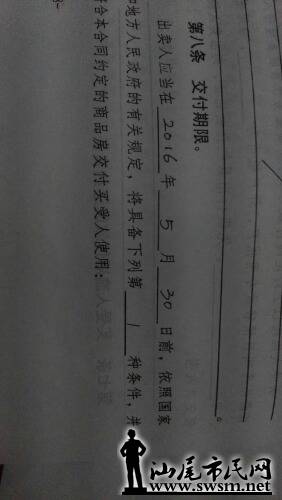 第八条 交付期限。
出卖人应当在 2016 年 5 月 30 日前，依照国家
地方人民政府的有关规定，将具备下列第 1 种条件，并
合本合同约定的商品房交付买受人使用：
汕尾市民网
www.swsm.net